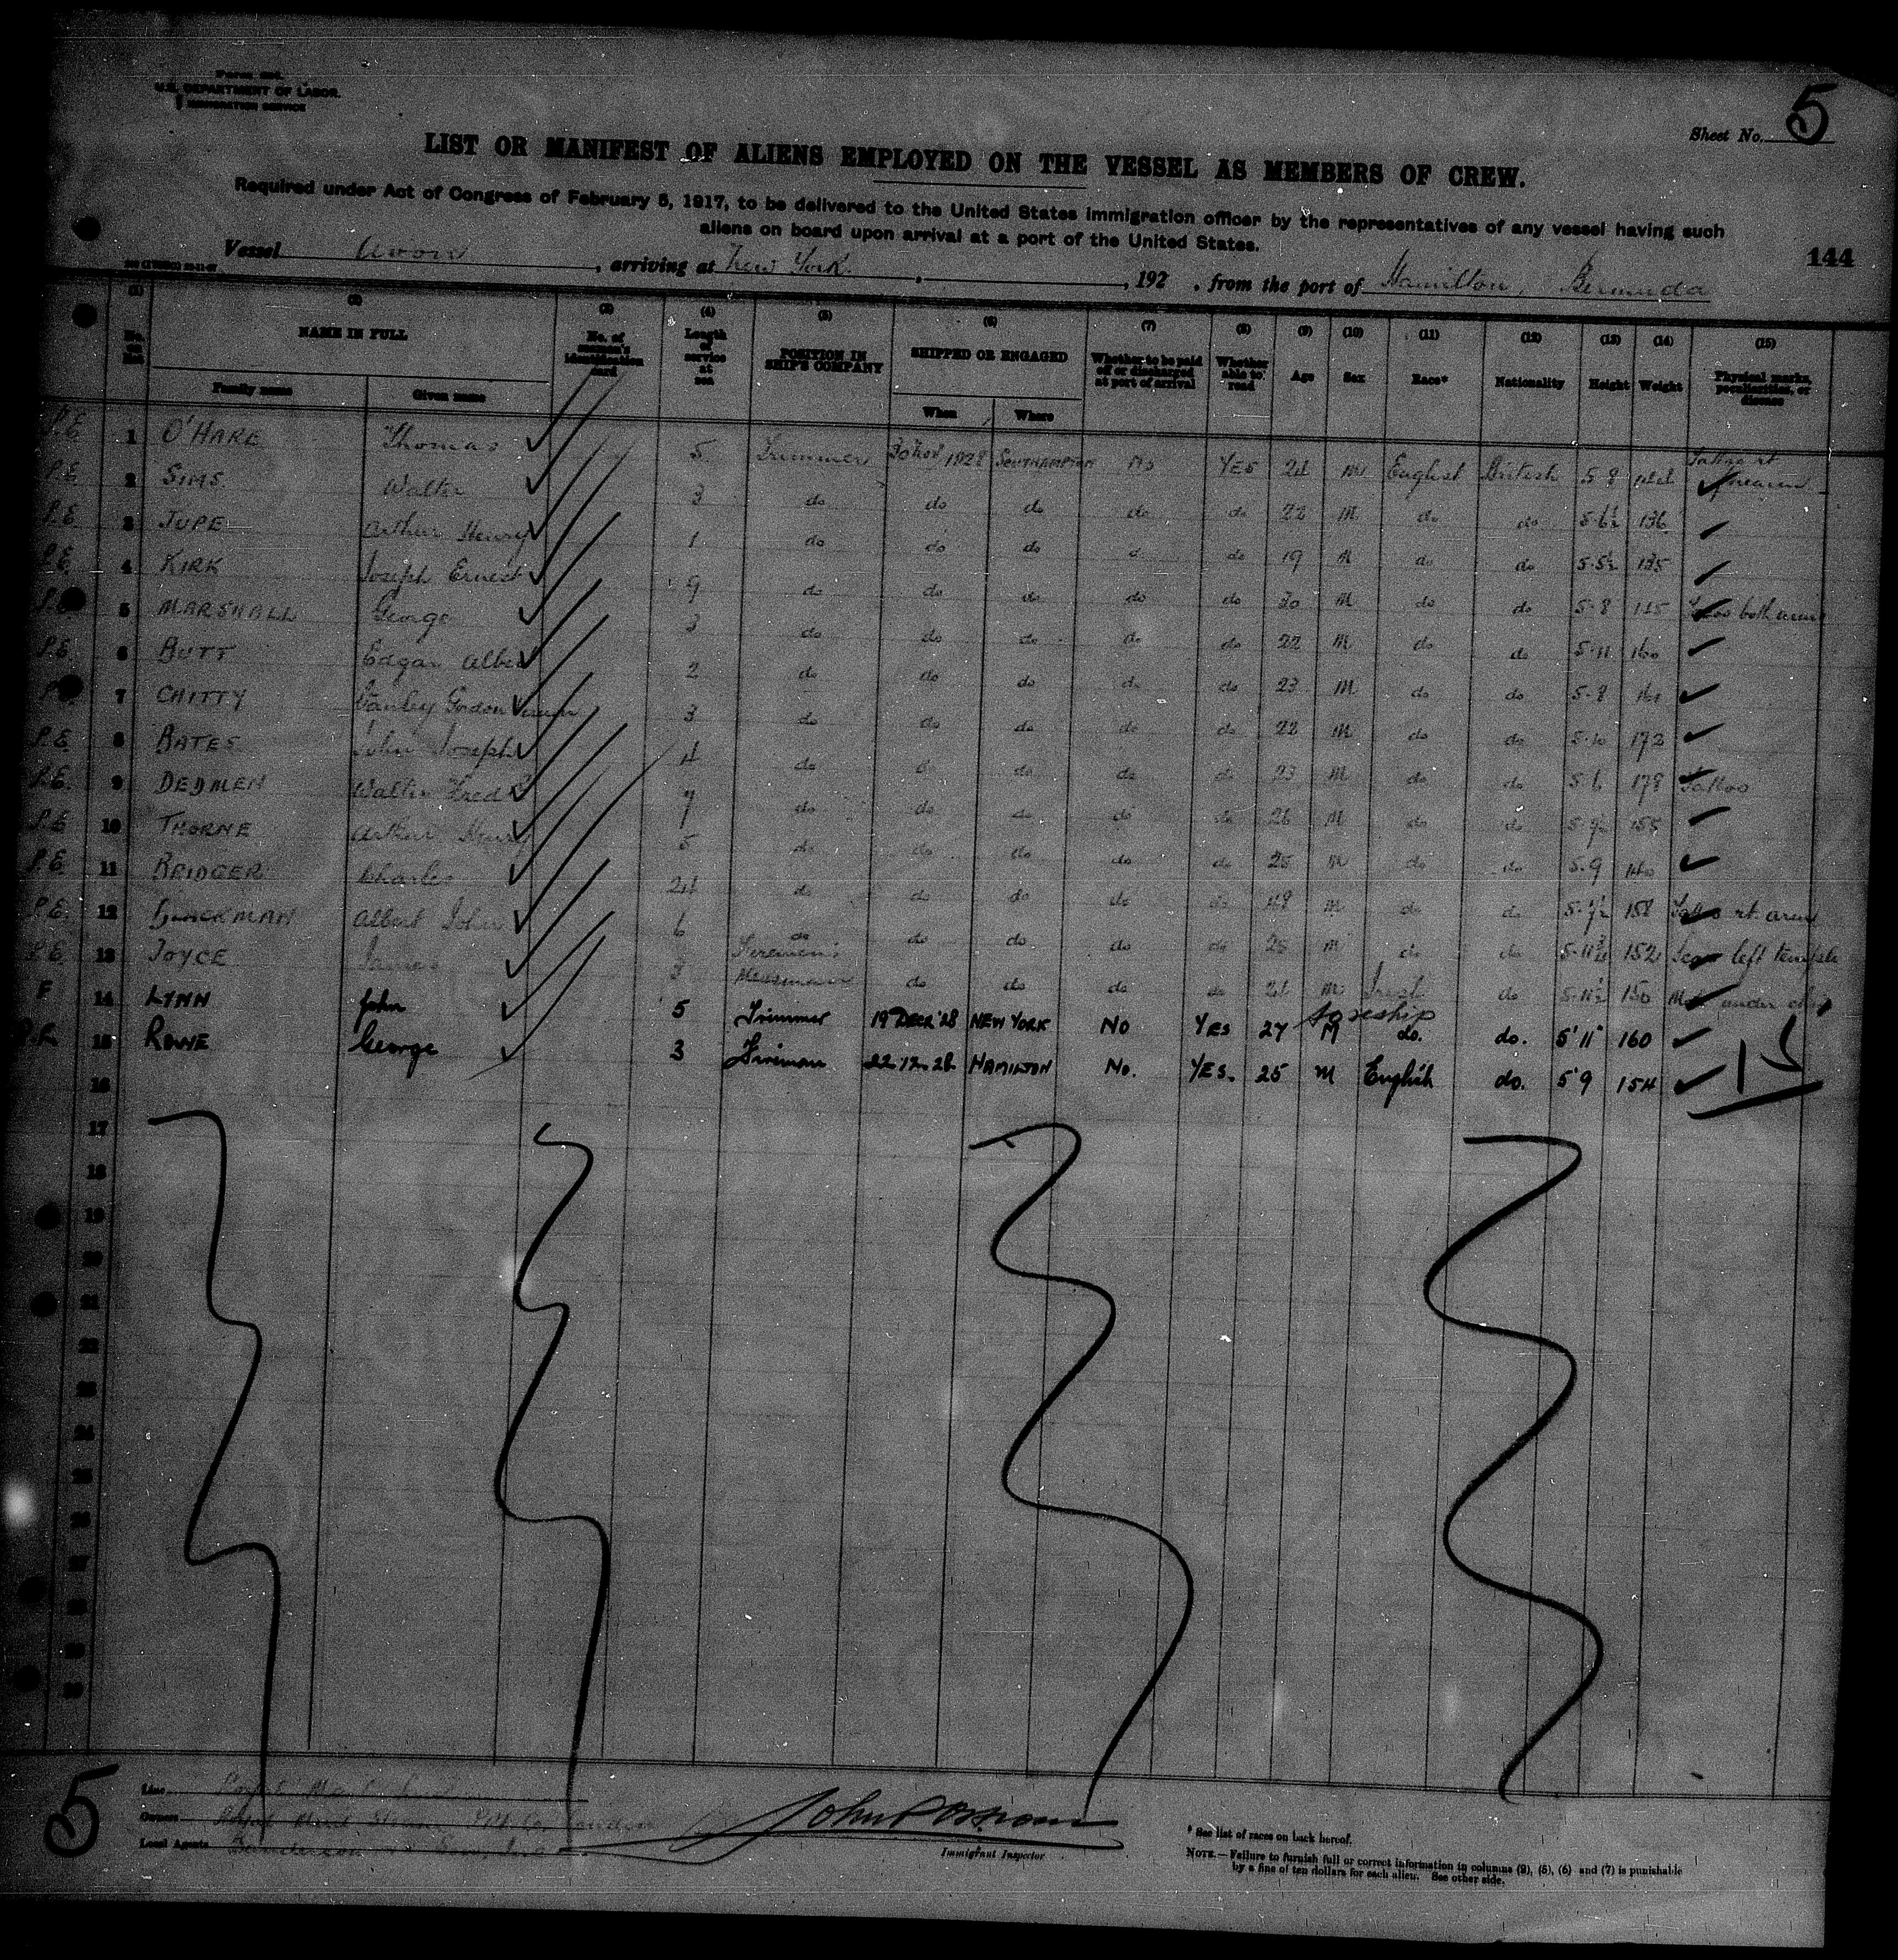 U.S. DEPARTMENT OF LABOR.
IMMIGRATION SERVICE
Sheet No. 5
LIST OR MANIFEST OF ALIENS EMPLOYED ON THE VESSEL AS MEMBERS OF CREW.
Required under Act of Congress of February 5, 1917, to be delivered to the United States immigration officer by the representatives of any vessel having such
aliens on board upon arrival at a port of the United States.
144
Vessel Avon, arriving at New York, , 192 , from the port of Hamilton, Bermuda
(1) (2) (3) (4) (5) (6) (7) (8) (9) (10) (11) (12) (13) (14) (15)
No. on list NAME IN FULL Family name Given name No. of seaman's identification card Length of service at sea POSITION IN SHIP'S COMPANY SHIPPED OR ENGAGED When Where Whether to be paid off or discharged at port of arrival Whether able to read Age Sex Race* Nationality Height Weight Physical marks, peculiarities, or disease
P.E. 1 O'HARE Thomas 5 Trimmer 30 Nov 1928 SOUTHAMPTON No YES 24 M English British 5-8 144 Tattoo rt forearm
P.E. 2 SIMS Walter 3 do do do do do 22 M do do 5-6½ 136
P.E. 3 JUPE Arthur Henry 1 do do do do do 19 M do do 5-5½ 135
P.E. 4 KIRK Joseph Ernest 9 do do do do do 30 M do do 5-8 145 Tattoo both arms
P.E. 5 MARSHALL George 3 do do do do do 22 M do do 5-11 160
P.E. 6 BUTT Edgar Albert 2 do do do do do 23 M do do 5-8 161
7 CHITTY Stanley Gordon 3 do do do do do 22 M do do 5-10 172
P.E. 8 BATES John Joseph 4 do do do do do 23 M do do 5-6 178 Tattoo
P.E. 9 DEDMEN Walter Fred 7 do do do do do 26 M do do 5-9½ 155
P.E. 10 THORNE Arthur Henry 5 do do do do do 25 M do do 5-9 140
P.E. 11 BRIDGER Charles 24 do do do do do 48 M do do 5-7½ 158 Tattoo rt arm
P.E. 12 BLACKMAN Albert John 6 do do do do do 25 M do do 5-11¾ 152 Scar left temple
P.E. 13 JOYCE James 3 Firemen's Messman do do do do 21 M Irish do 5-11½ 150 under chin
F 14 LYNN John 5 Trimmer 19 DECR '28 NEW YORK No YES 27 M do. do. 5'11" 160
15 ROWE George 3 Fireman 22.12.28 HAMILTON No. YES. 25 M English do. 5'9 154
15
16
17
18
19
20
21
22
23
24
25
26
27
28
29
30
5
Line Royal Mail
Owners Royal Mail Steam Pkt Co, London
Local Agents Sanderson & Son, Inc
Immigrant Inspector
* See list of races on back hereof.
NOTE.—Failure to furnish full or correct information in columns (2), (5), (6) and (7) is punishable
by a fine of ten dollars for each alien. See other side.